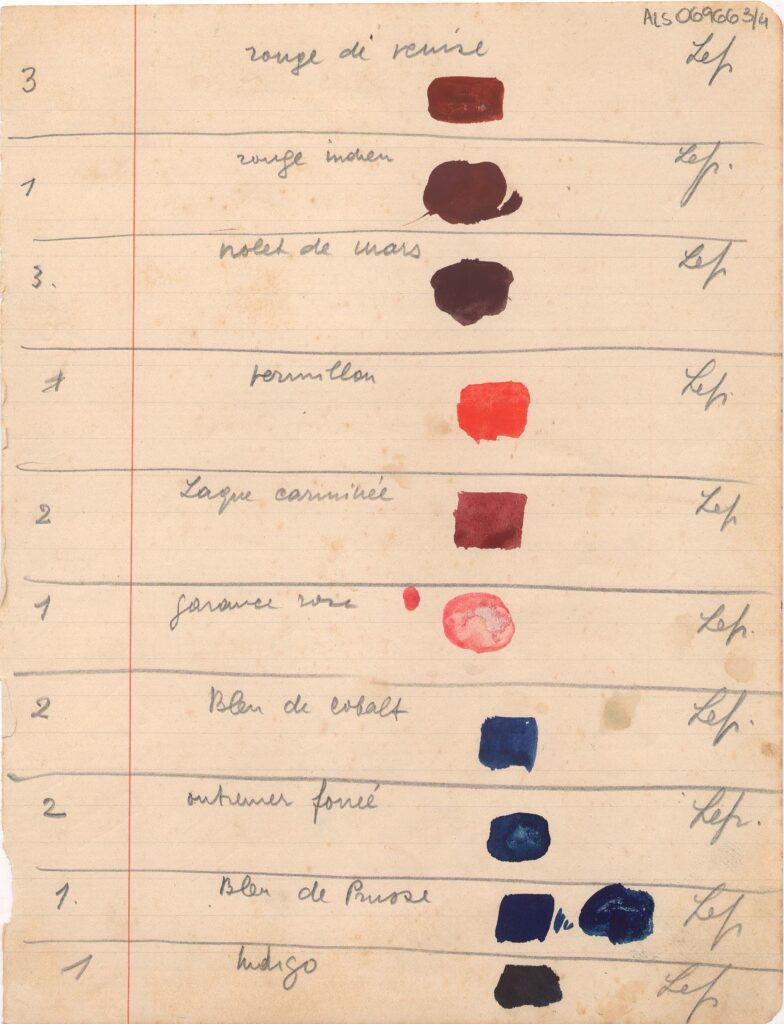 ALS 069663/4
3 rouge de venise Lef
1 rouge indien Lef.
3. violet de mars Lef
1 vermillon Lef.
2 Laque carminée Lef
1 garance rose Lef.
2 Bleu de cobalt Lef.
2 outremer foncé Lef.
1. Bleu de Prusse Lef
1 Indigo Lef